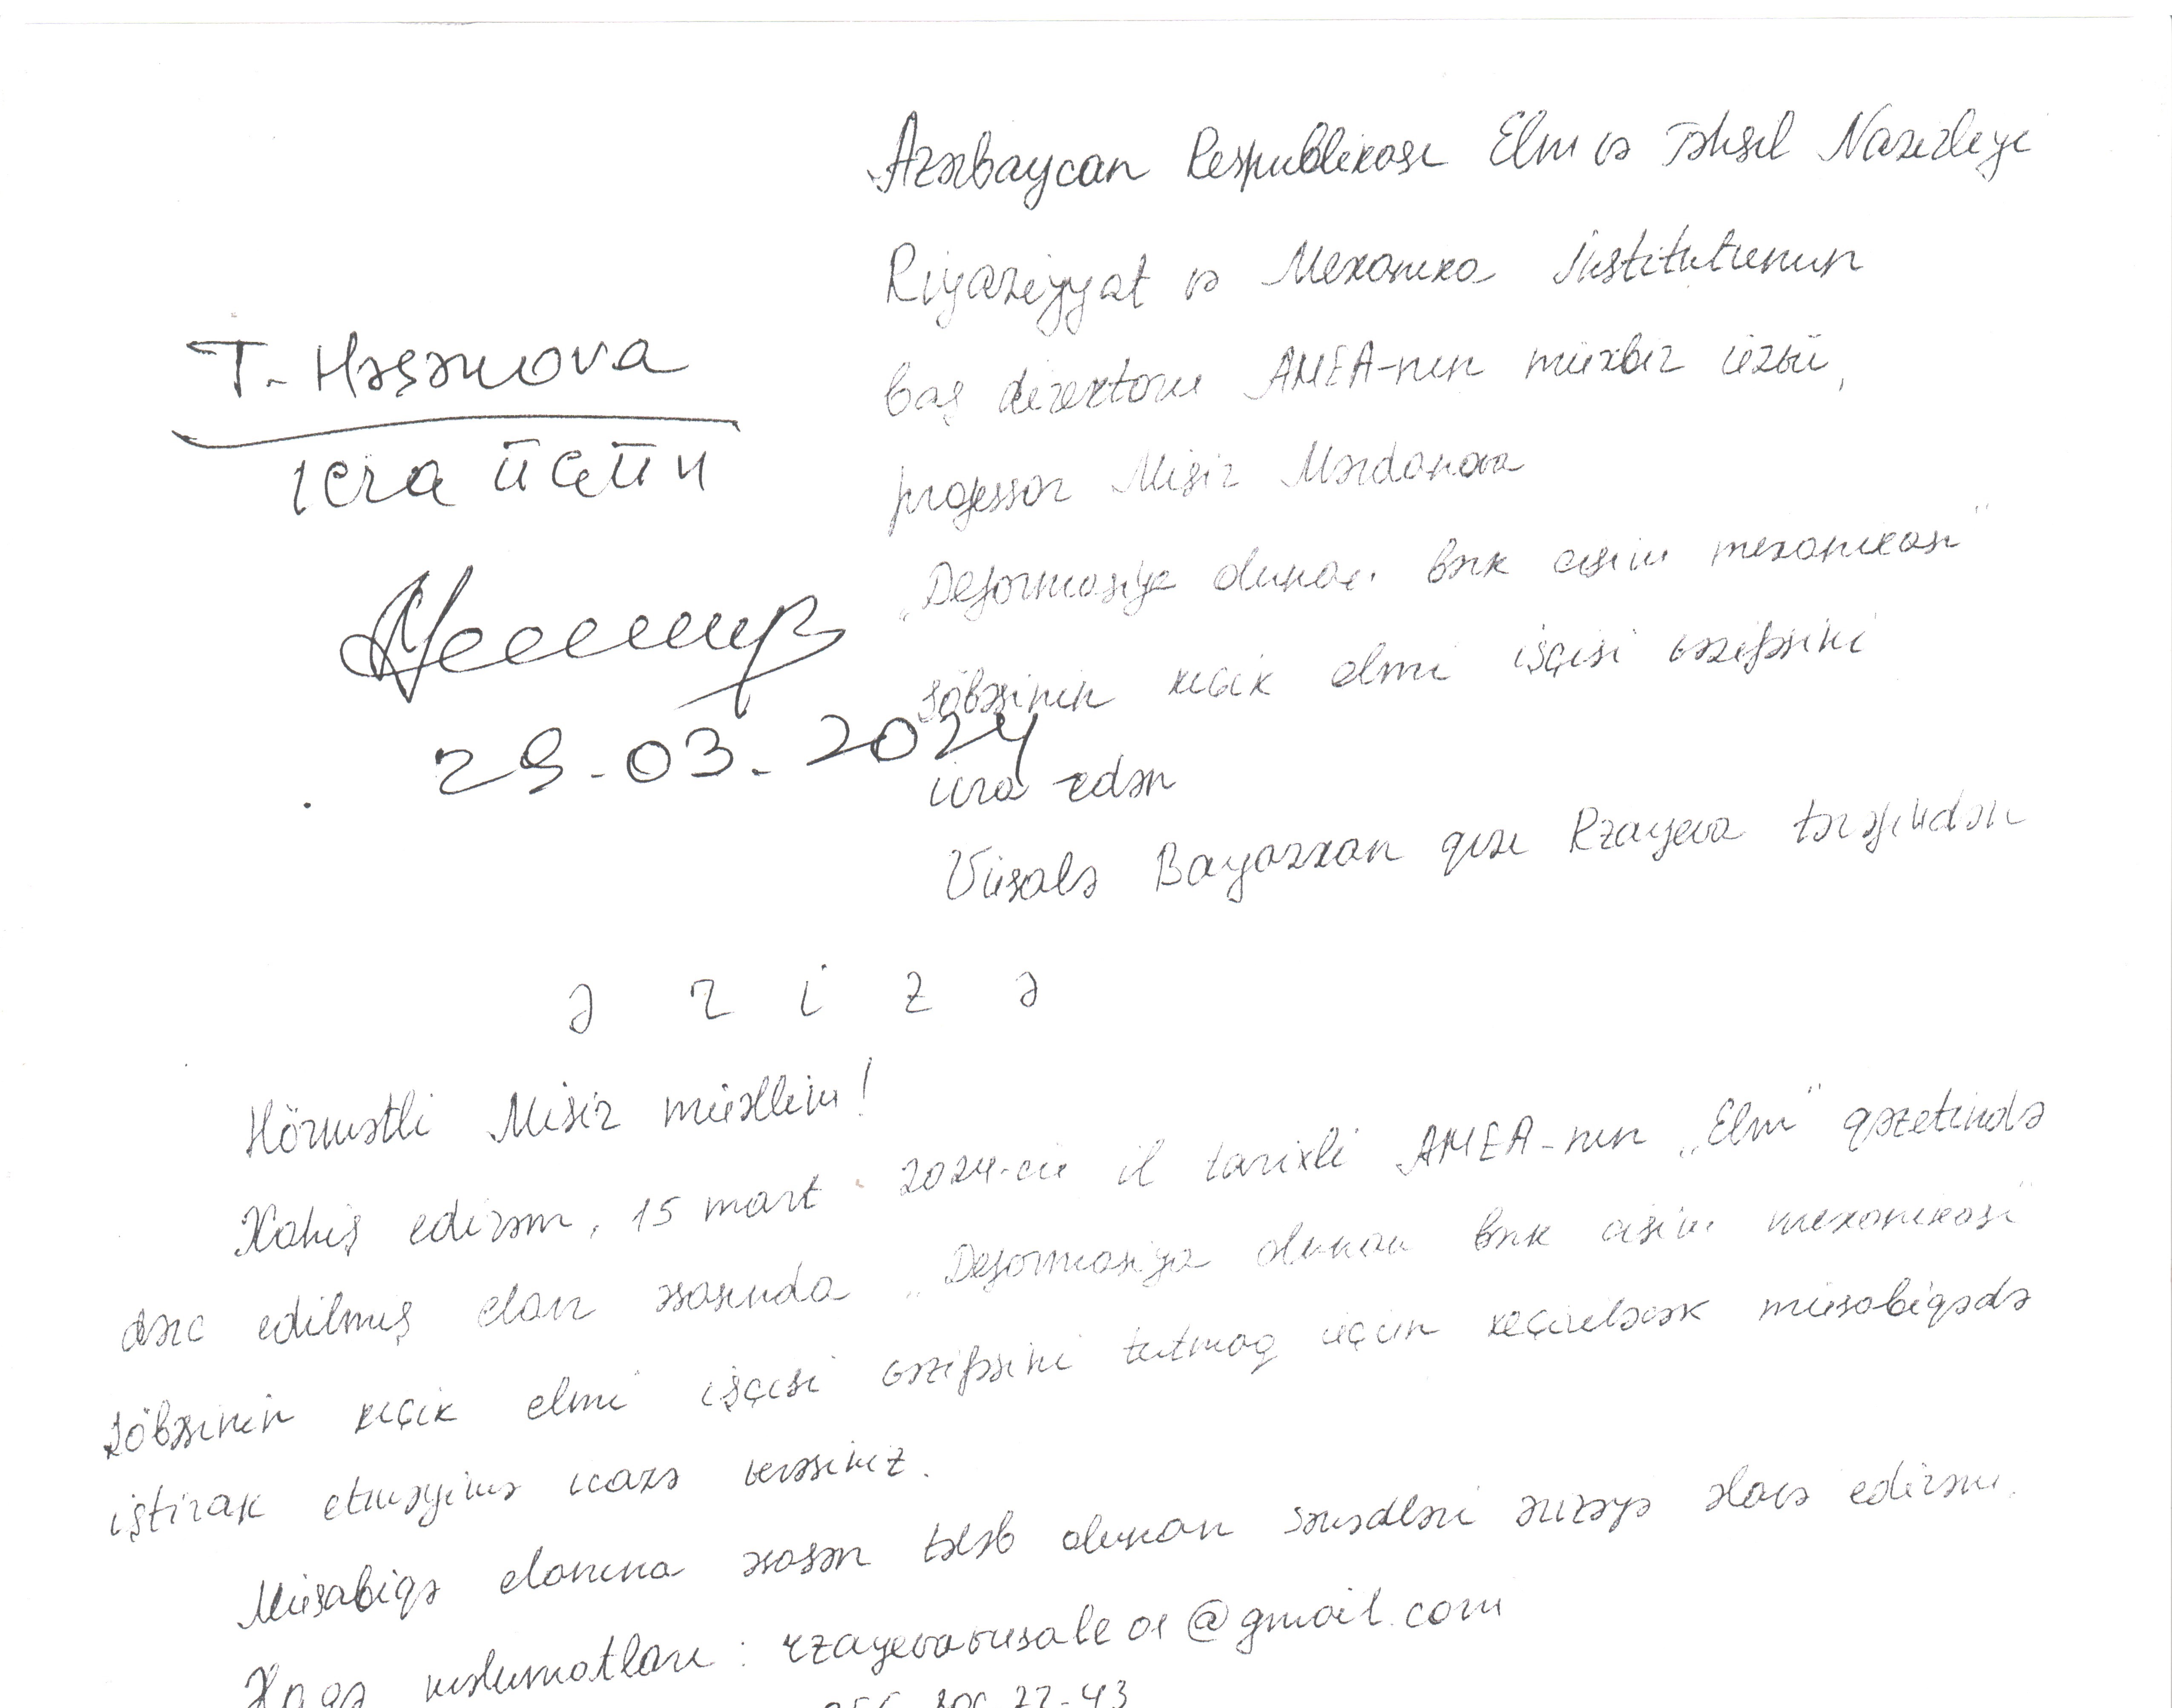 Azərbaycan Respublikası Elm və Təhsil Nazirliyi
Riyaziyyat və Mexanika İnstitutunun
baş direktoru AMEA-nın müxbir üzvü,
professor Misir Mərdanova
„Deformasiya olunan bərk cisim mexanikası"
şöbəsinin kiçik elmi işçisi vəzifəsini
icra edən
Vüsalə Bayazxan qızı Rzayeva tərəfindən
T. Həsənova
icra üçün
29.03.2024
ə r i z ə
Hörmətli Misir müəllim!
Xahiş edirəm, 15 mart 2024-cü il tarixli AMEA-nın „Elm" qəzetində
dərc edilmiş elan əsasında „Deformasiya olunan bərk cisim mexanikası"
şöbəsinin kiçik elmi işçisi vəzifəsini tutmaq üçün keçiriləcək müsabiqədə
iştirak etməyimə icazə verəsiniz.
Müsabiqə elanına əsasən tələb olunan sənədləri ərizəyə əlavə edirəm.
məlumatları: @gmail.com